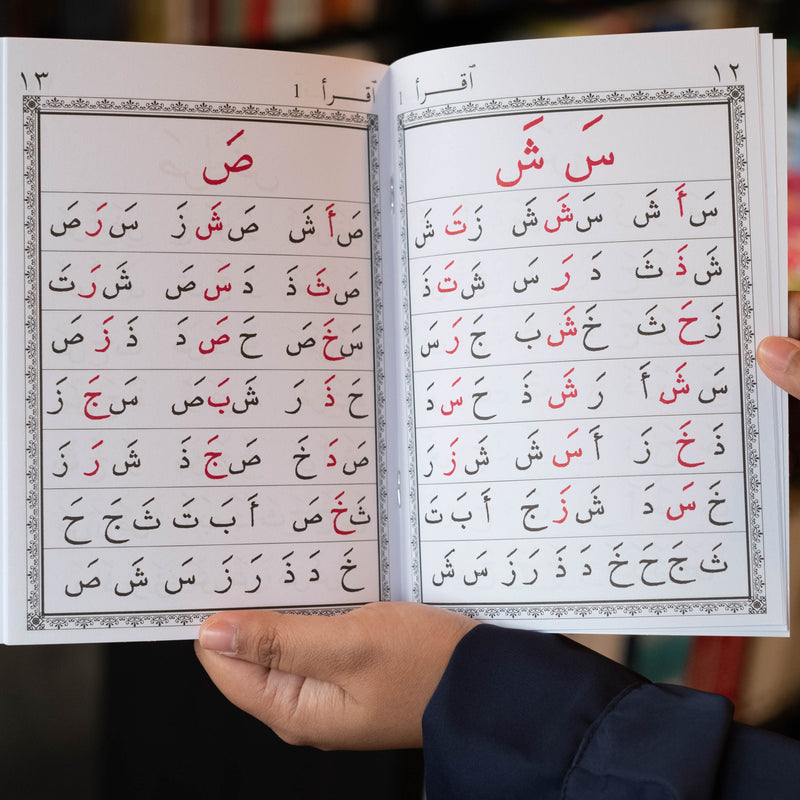 ١٢
ٱقرأ 1
سَ شَ
سَ أَ شَ سَ شَ شَ زَ تَ شَ
شَ ذَ ثَ دَ رَ سَ شَ تَ ذَ
زَ حَ ثَ خَ شَ بَ جَ رَ سَ
سَ شَ أَ رَ شَ ذَ حَ سَ دَ
ذَ خَ زَ أَ سَ شَ شَ زَ رَ
خَ سَ دَ شَ زَ جَ أَ بَ تَ
ثَ جَ حَ خَ دَ ذَ رَ زَ سَ شَ
١٣
ٱقرأ 1
صَ
صَ أَ شَ صَ شَ زَ سَ رَ صَ
صَ ثَ ذَ دَ سَ صَ شَ رَ تَ
سَ خَ صَ حَ صَ دَ ذَ زَ صَ
حَ ذَ رَ شَ بَ صَ سَ جَ زَ
صَ دَ خَ صَ جَ ذَ شَ رَ زَ
ثَ خَ صَ أَ بَ تَ ثَ جَ حَ
خَ دَ ذَ رَ زَ سَ شَ صَ